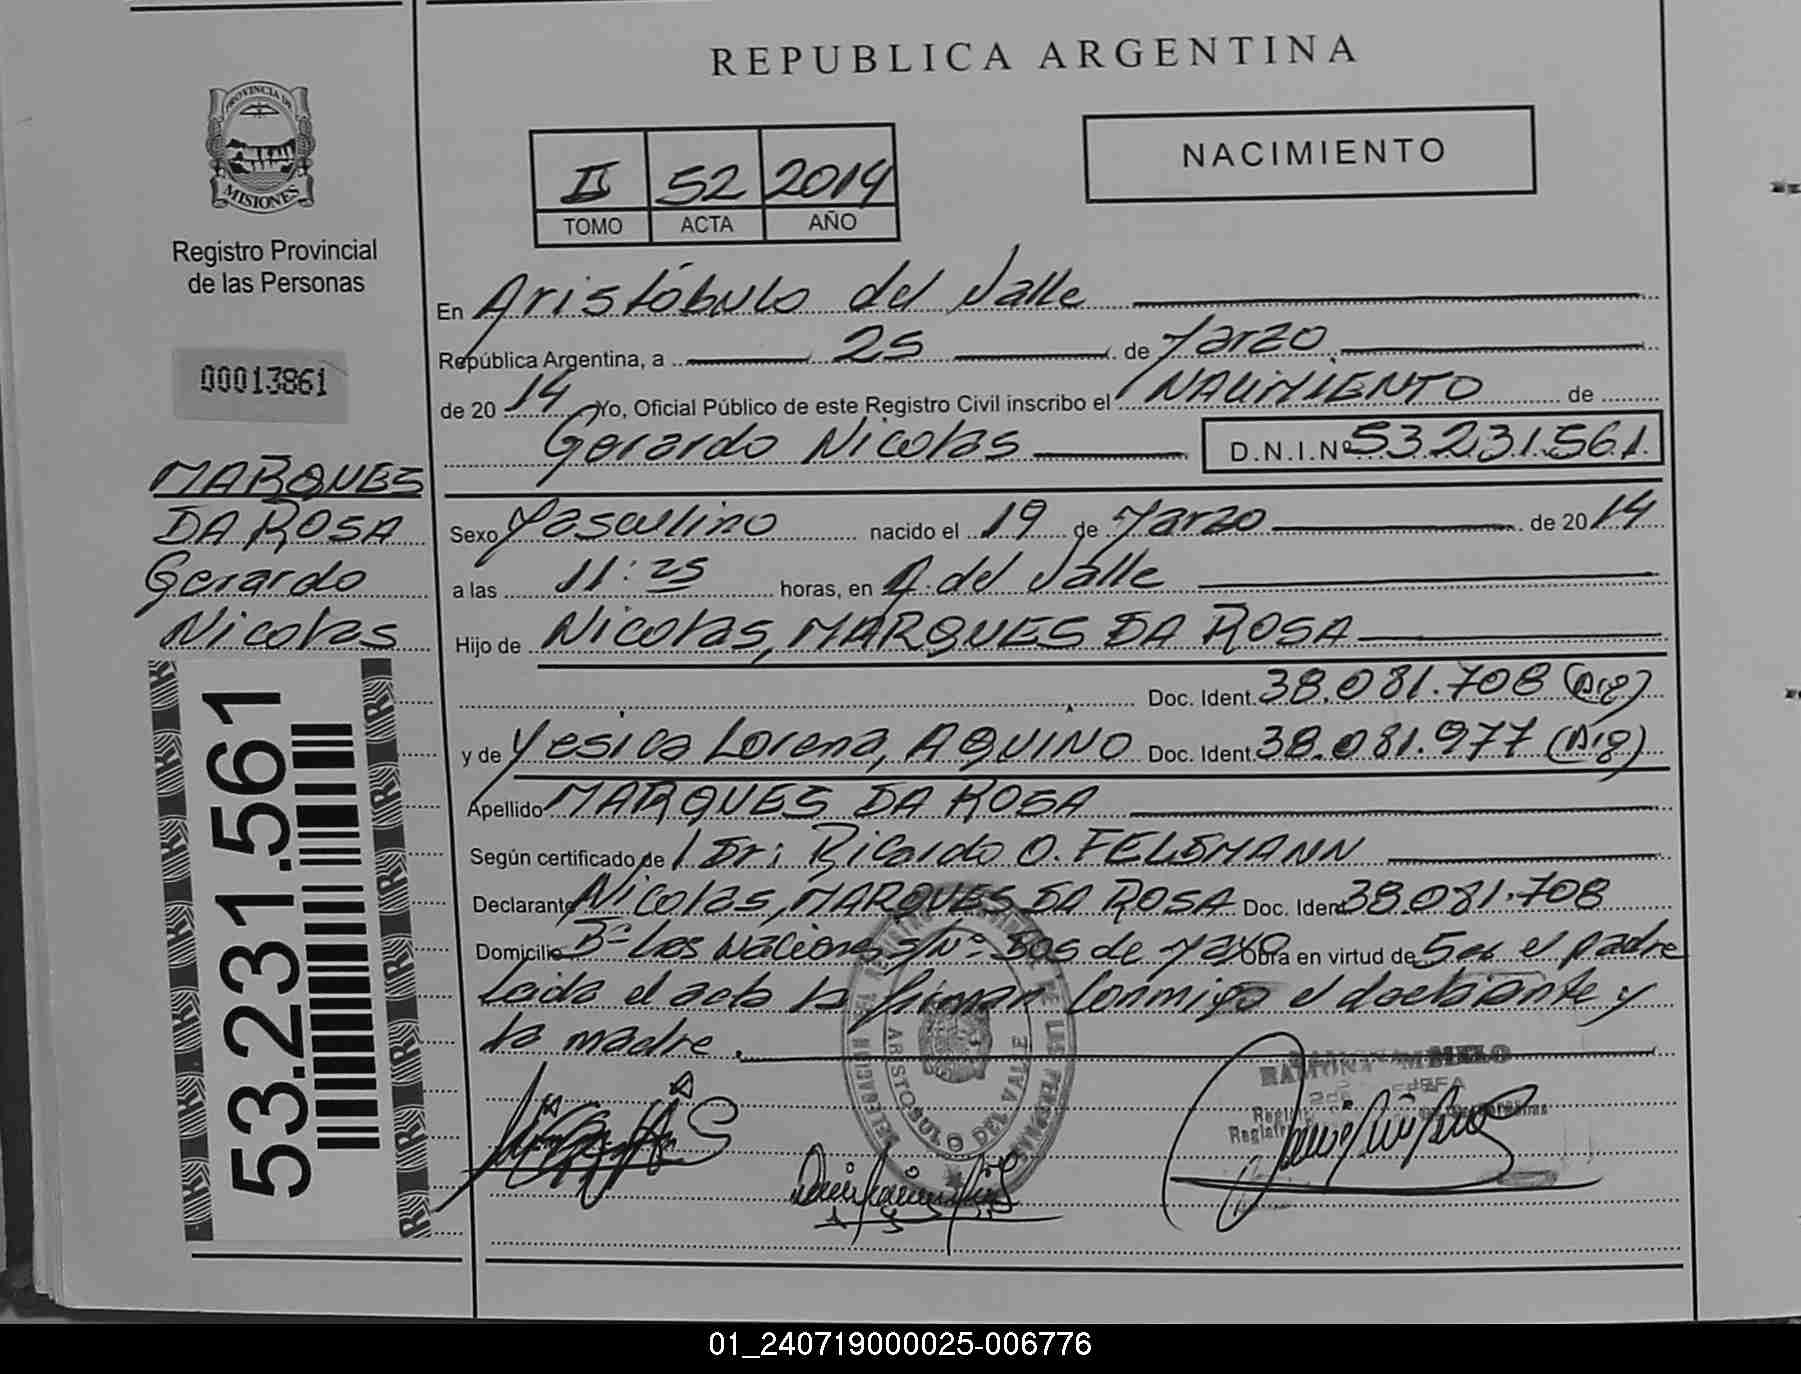 REPUBLICA ARGENTINA
PROVINCIA DE
MISIONES
Registro Provincial
de las Personas
00013861
MARQUES
DA ROSA
Gerardo
Nicolas
53.231.561
II 52 2014
TOMO ACTA AÑO
NACIMIENTO
En Aristóbulo del Valle
República Argentina, a 25 de Marzo
de 20 14 Yo, Oficial Público de este Registro Civil inscribo el NACIMIENTO de
Gerardo Nicolas D.N.I.Nº 53.231.561.
Sexo Masculino nacido el 19 de Marzo de 20 14
a las 11:25 horas, en A. del Valle
Hijo de Nicolas, MARQUES DA ROSA
Doc. Ident. 38.081.708 (Arg)
y de Yesica Lorena, AQUINO Doc. Ident. 38.081.977 (Arg)
Apellido MARQUES DA ROSA
Según certificado de / Dr: Ricardo O. FELDMANN
Declarante Nicolas, MARQUES DA ROSA Doc. Ident 38.081.708
Domicilio Bº Las Naciones s/Nº Dos de Mayo Obra en virtud de Ser el padre
Leida el acta la firman Conmigo el declarante y
la madre.
ARISTOBULO DEL VALLE
RAMONA MELO
JEFA
01_240719000025-006776